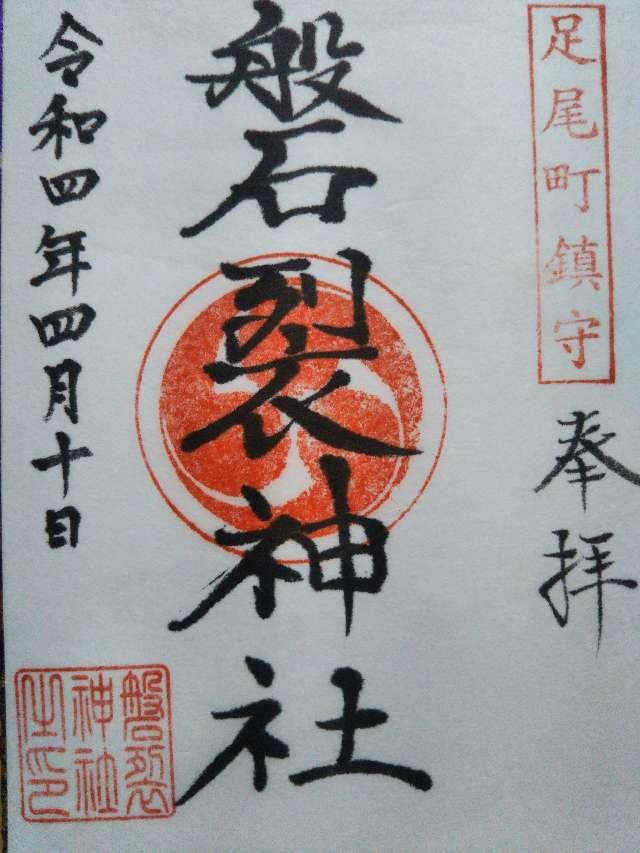 足尾町鎮守
奉拝
磐裂神社
令和四年四月十日
磐裂
神社
之印